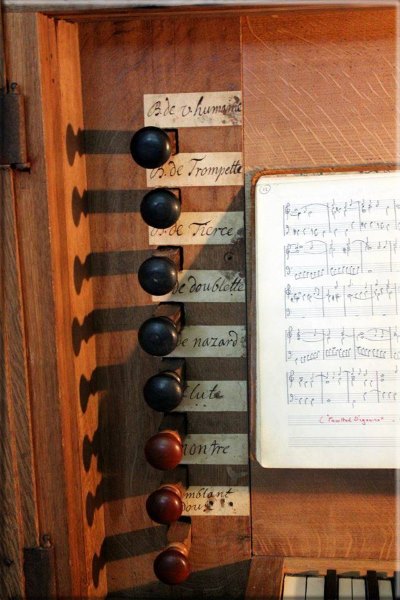 B. de v humaine
B. de Trompette
B. de Tierce
de doublette
de nazard
flute
montre
emblant
dou